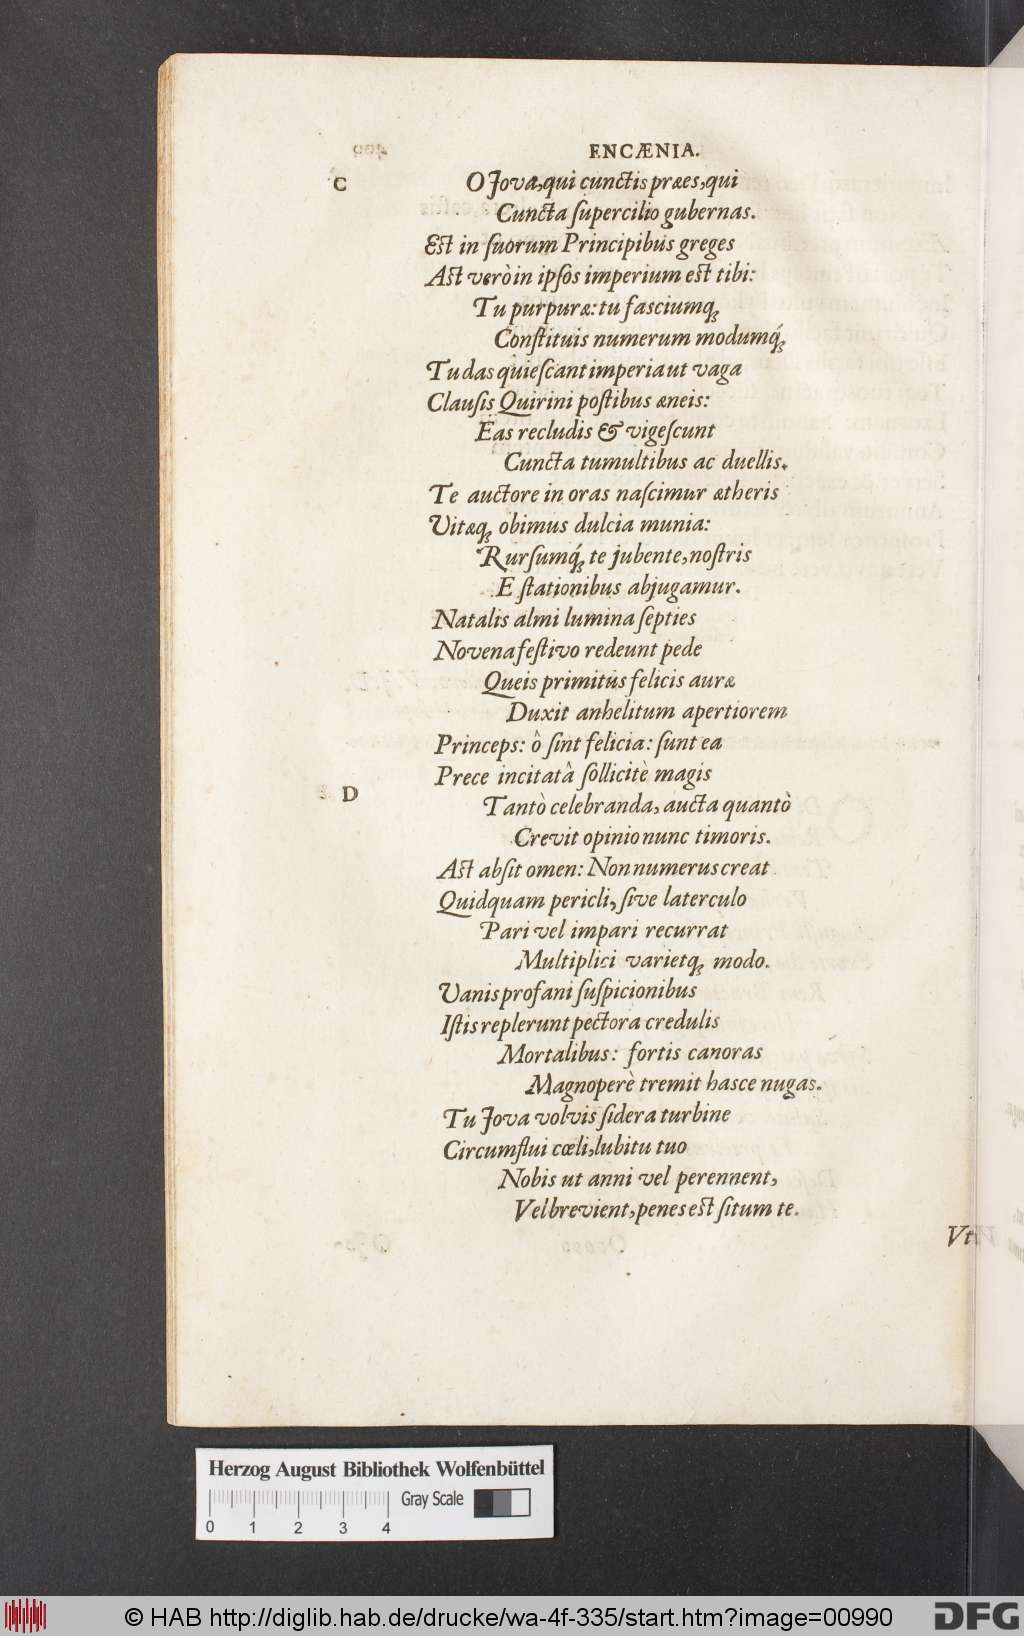 ENCÆNIA.
C
O Jova, qui cunctis præes, qui
Cuncta ſupercilio gubernas.
Est in ſuorum Principibus greges
Ast verò in ipſos imperium est tibi:
Tu purpuræ: tu faſciumq́;
Conſtituis numerum modumq́;
Tu das quieſcant imperia ut vaga
Clauſis Quirini poſtibus æneis:
Eas recludis & vigeſcunt
Cuncta tumultibus ac duellis.
Te auctore in oras naſcimur ætheris
Vitæq; obimus dulcia munia:
Rurſumq́; te jubente, noſtris
E ſtationibus abjugamur.
Natalis almi lumina ſepties
Novena feſtivo redeunt pede
Queis primitùs felicis auræ
Duxit anhelitum apertiorem
Princeps: ô ſint felicia: ſunt ea
Prece incitatâ ſollicitè magis
D
Tantò celebranda, aucta quantò
Crevit opinio nunc timoris.
Ast abſit omen: Non numerus creat
Quidquam pericli, ſive laterculo
Pari vel impari recurrat
Multiplici varietq; modo.
Vanis profani ſuſpicionibus
Iſtis replerunt pectora credulis
Mortalibus: fortis canoras
Magnoperè tremit hasce nugas.
Tu Jova volvis ſidera turbine
Circumflui cœli, lubitu tuo
Nobis ut anni vel perennent,
Vel brevient, penes est ſitum te.
Vt
Herzog August Bibliothek Wolfenbüttel
Gray Scale
0 1 2 3 4
© HAB http://diglib.hab.de/drucke/wa-4f-335/start.htm?image=00990
DFG